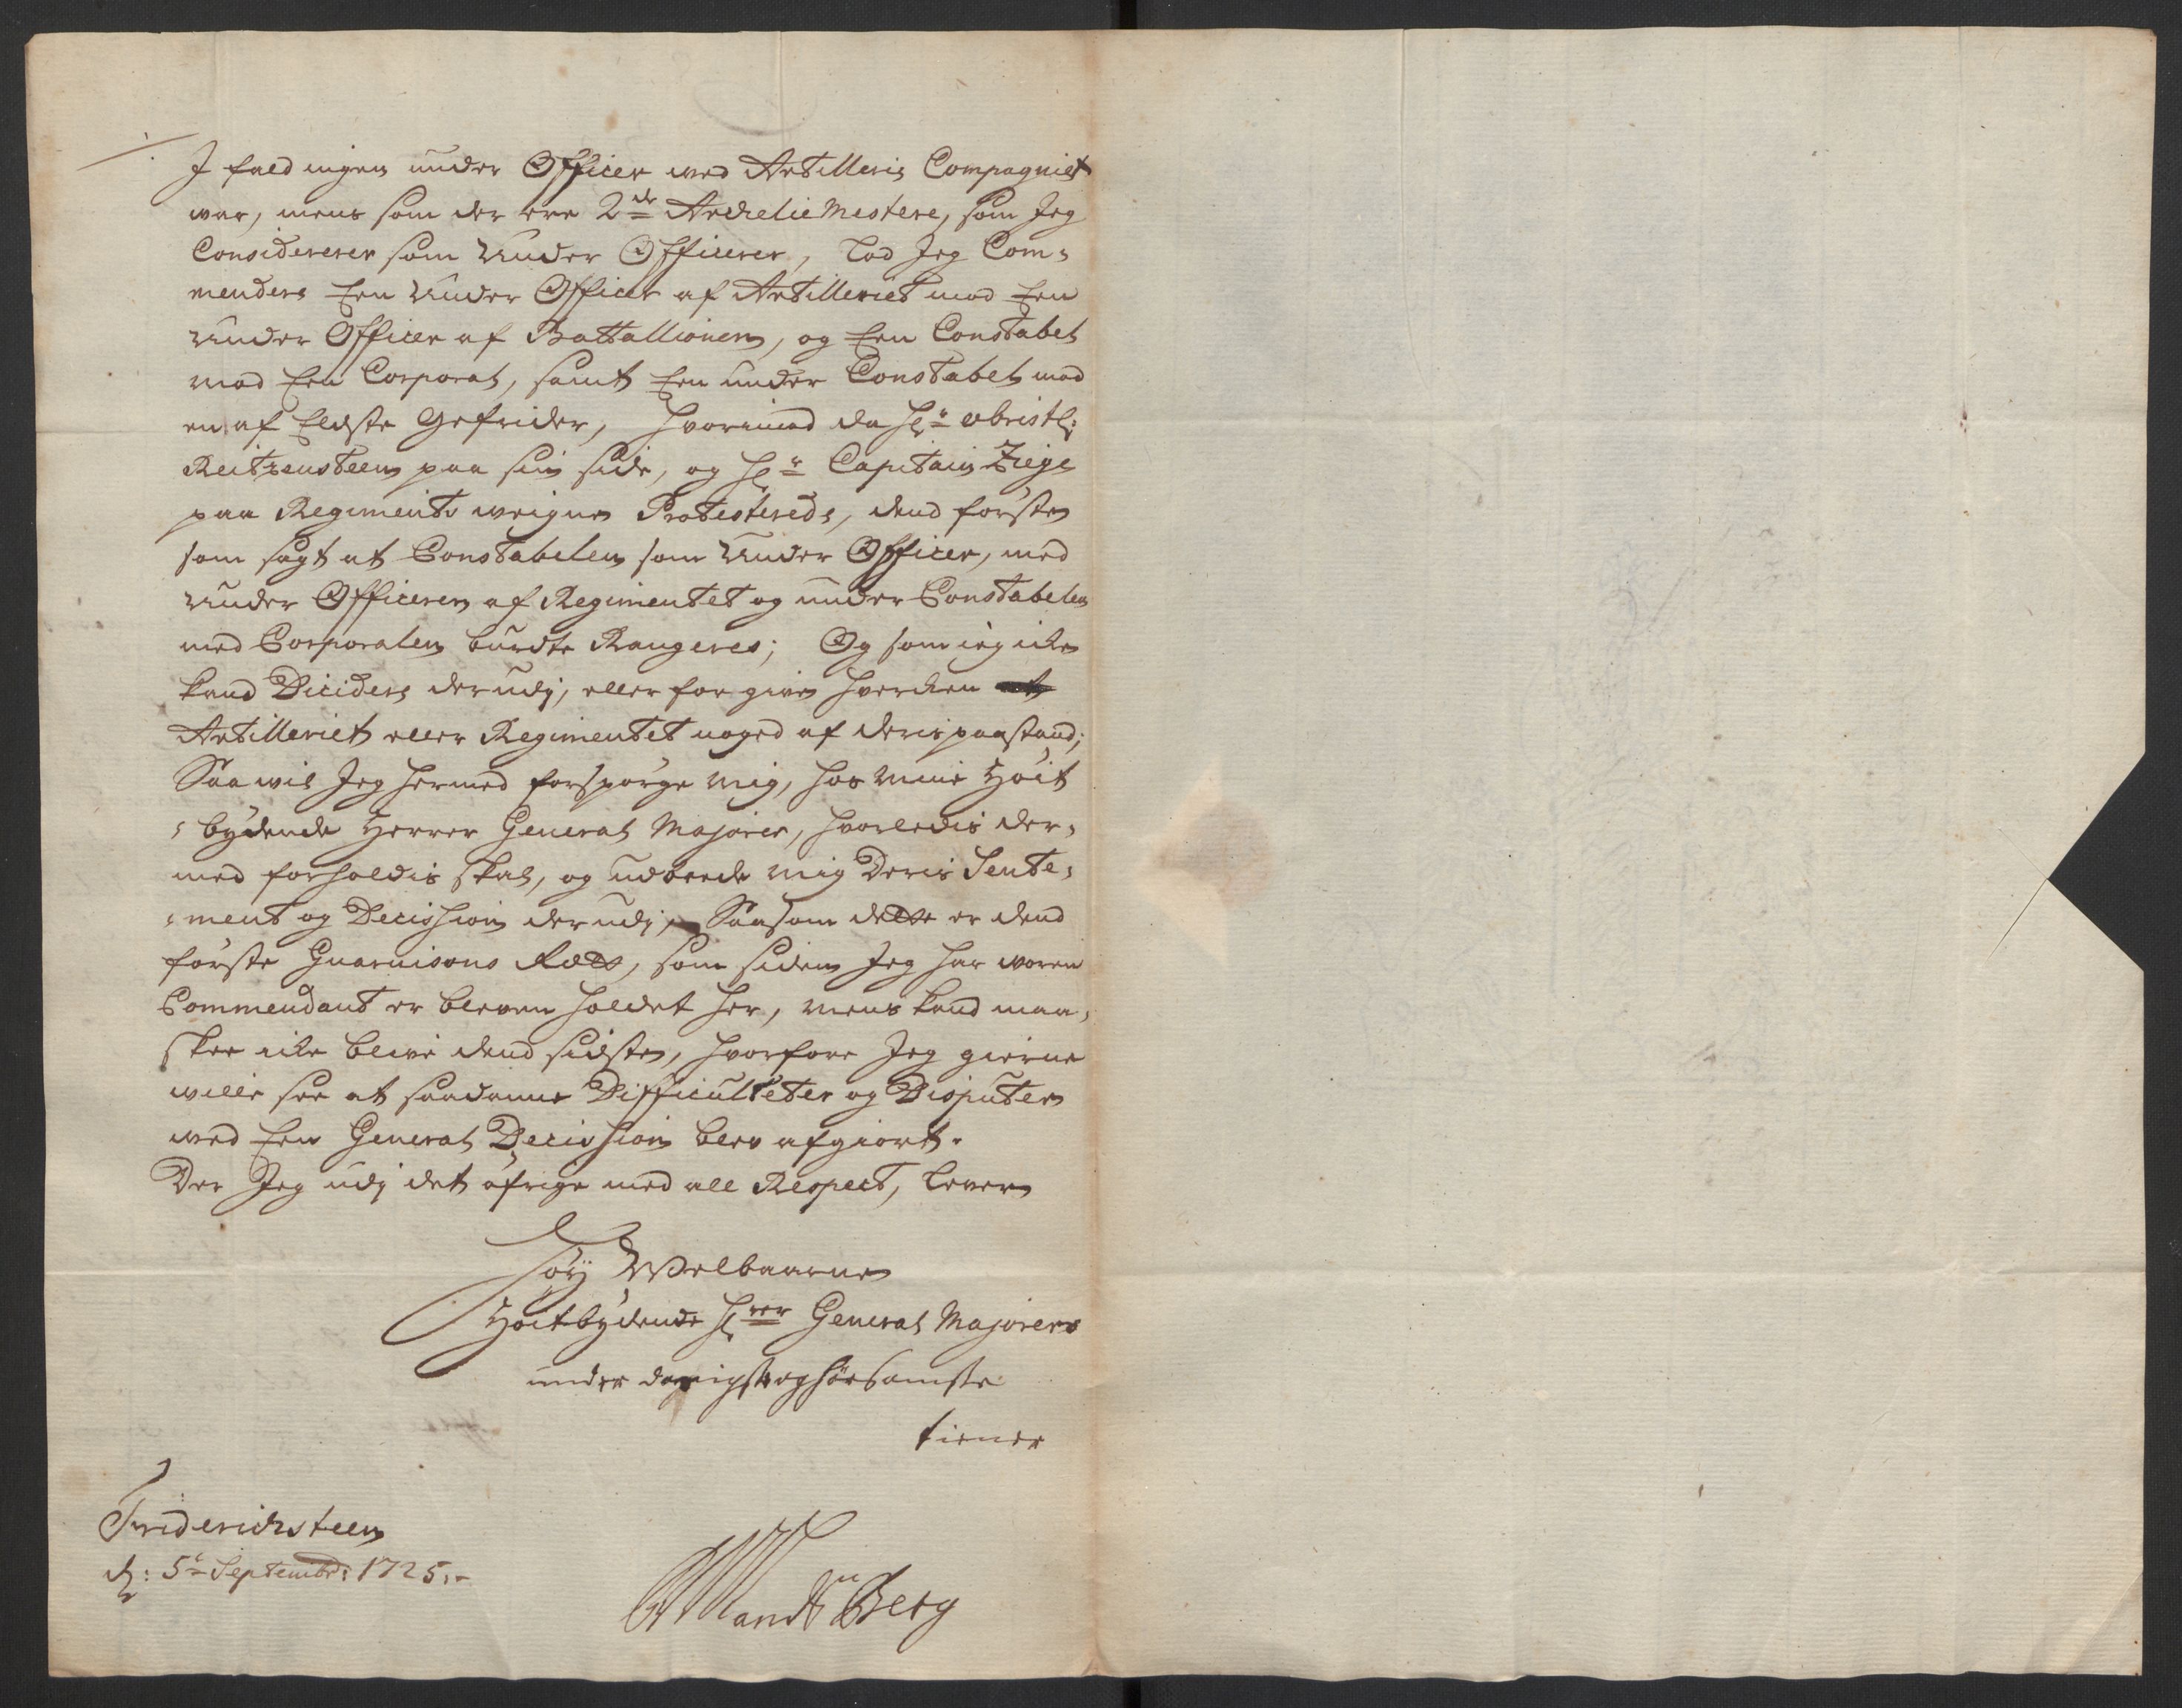 I fald ingen under Officer wed Artilleris Compagniet
war, mens som der ere 2de Archelie Mestere, som Jeg
Considererer som Under Officerer, lod Jeg Com-
mendere Een Under Officer af Artilleriet mod Een
Under Officer af Battallionen, og Een Constabel
mod Een Corporal, samt Een under Constabel mod
en af Eldste Gefrider, hvorimod da Hr. Obristl:
Reitzensteen paa sin side, og Hr. Capitain Ziege
paa Regimentz weigne Protesterede, dend første
som sagt at Constabelen som Under Officer, med
Under Officeren af Regimentet og under Constabelen
med Corporalen burdte Rangeres; Og som ieg icke
kand Dicidere derudj, eller forgive hwercken
Artilleriet eller Regimentet noged af deris paastand;
Saa wil Jeg hermed forspørge mig, hos mine Høit
-bydende Herrer General Majorer, hvorledis der-
med forholdis skal, og udbeede mig Deris Sente-
-ment og Decission derudj, Saasom dette er dend
første Guarnisons Rætt, som siden Jeg har woren
Commendant er bleven holdet her, mens kand maa-
skee icke blive dend sidste, hvorfore Jeg gierne
wille see at saadanne Difficulteter og Disputer
wed Een General Decission blev afgiort.
Der Jeg udj det øfrige med all Respect, lever
Høy Welbaarne
Høitbydende Hrer General Majorers
under danigst og hørsamste
tiener
Friderichsteen
d: 5e Septembr: 1725.-
Berg